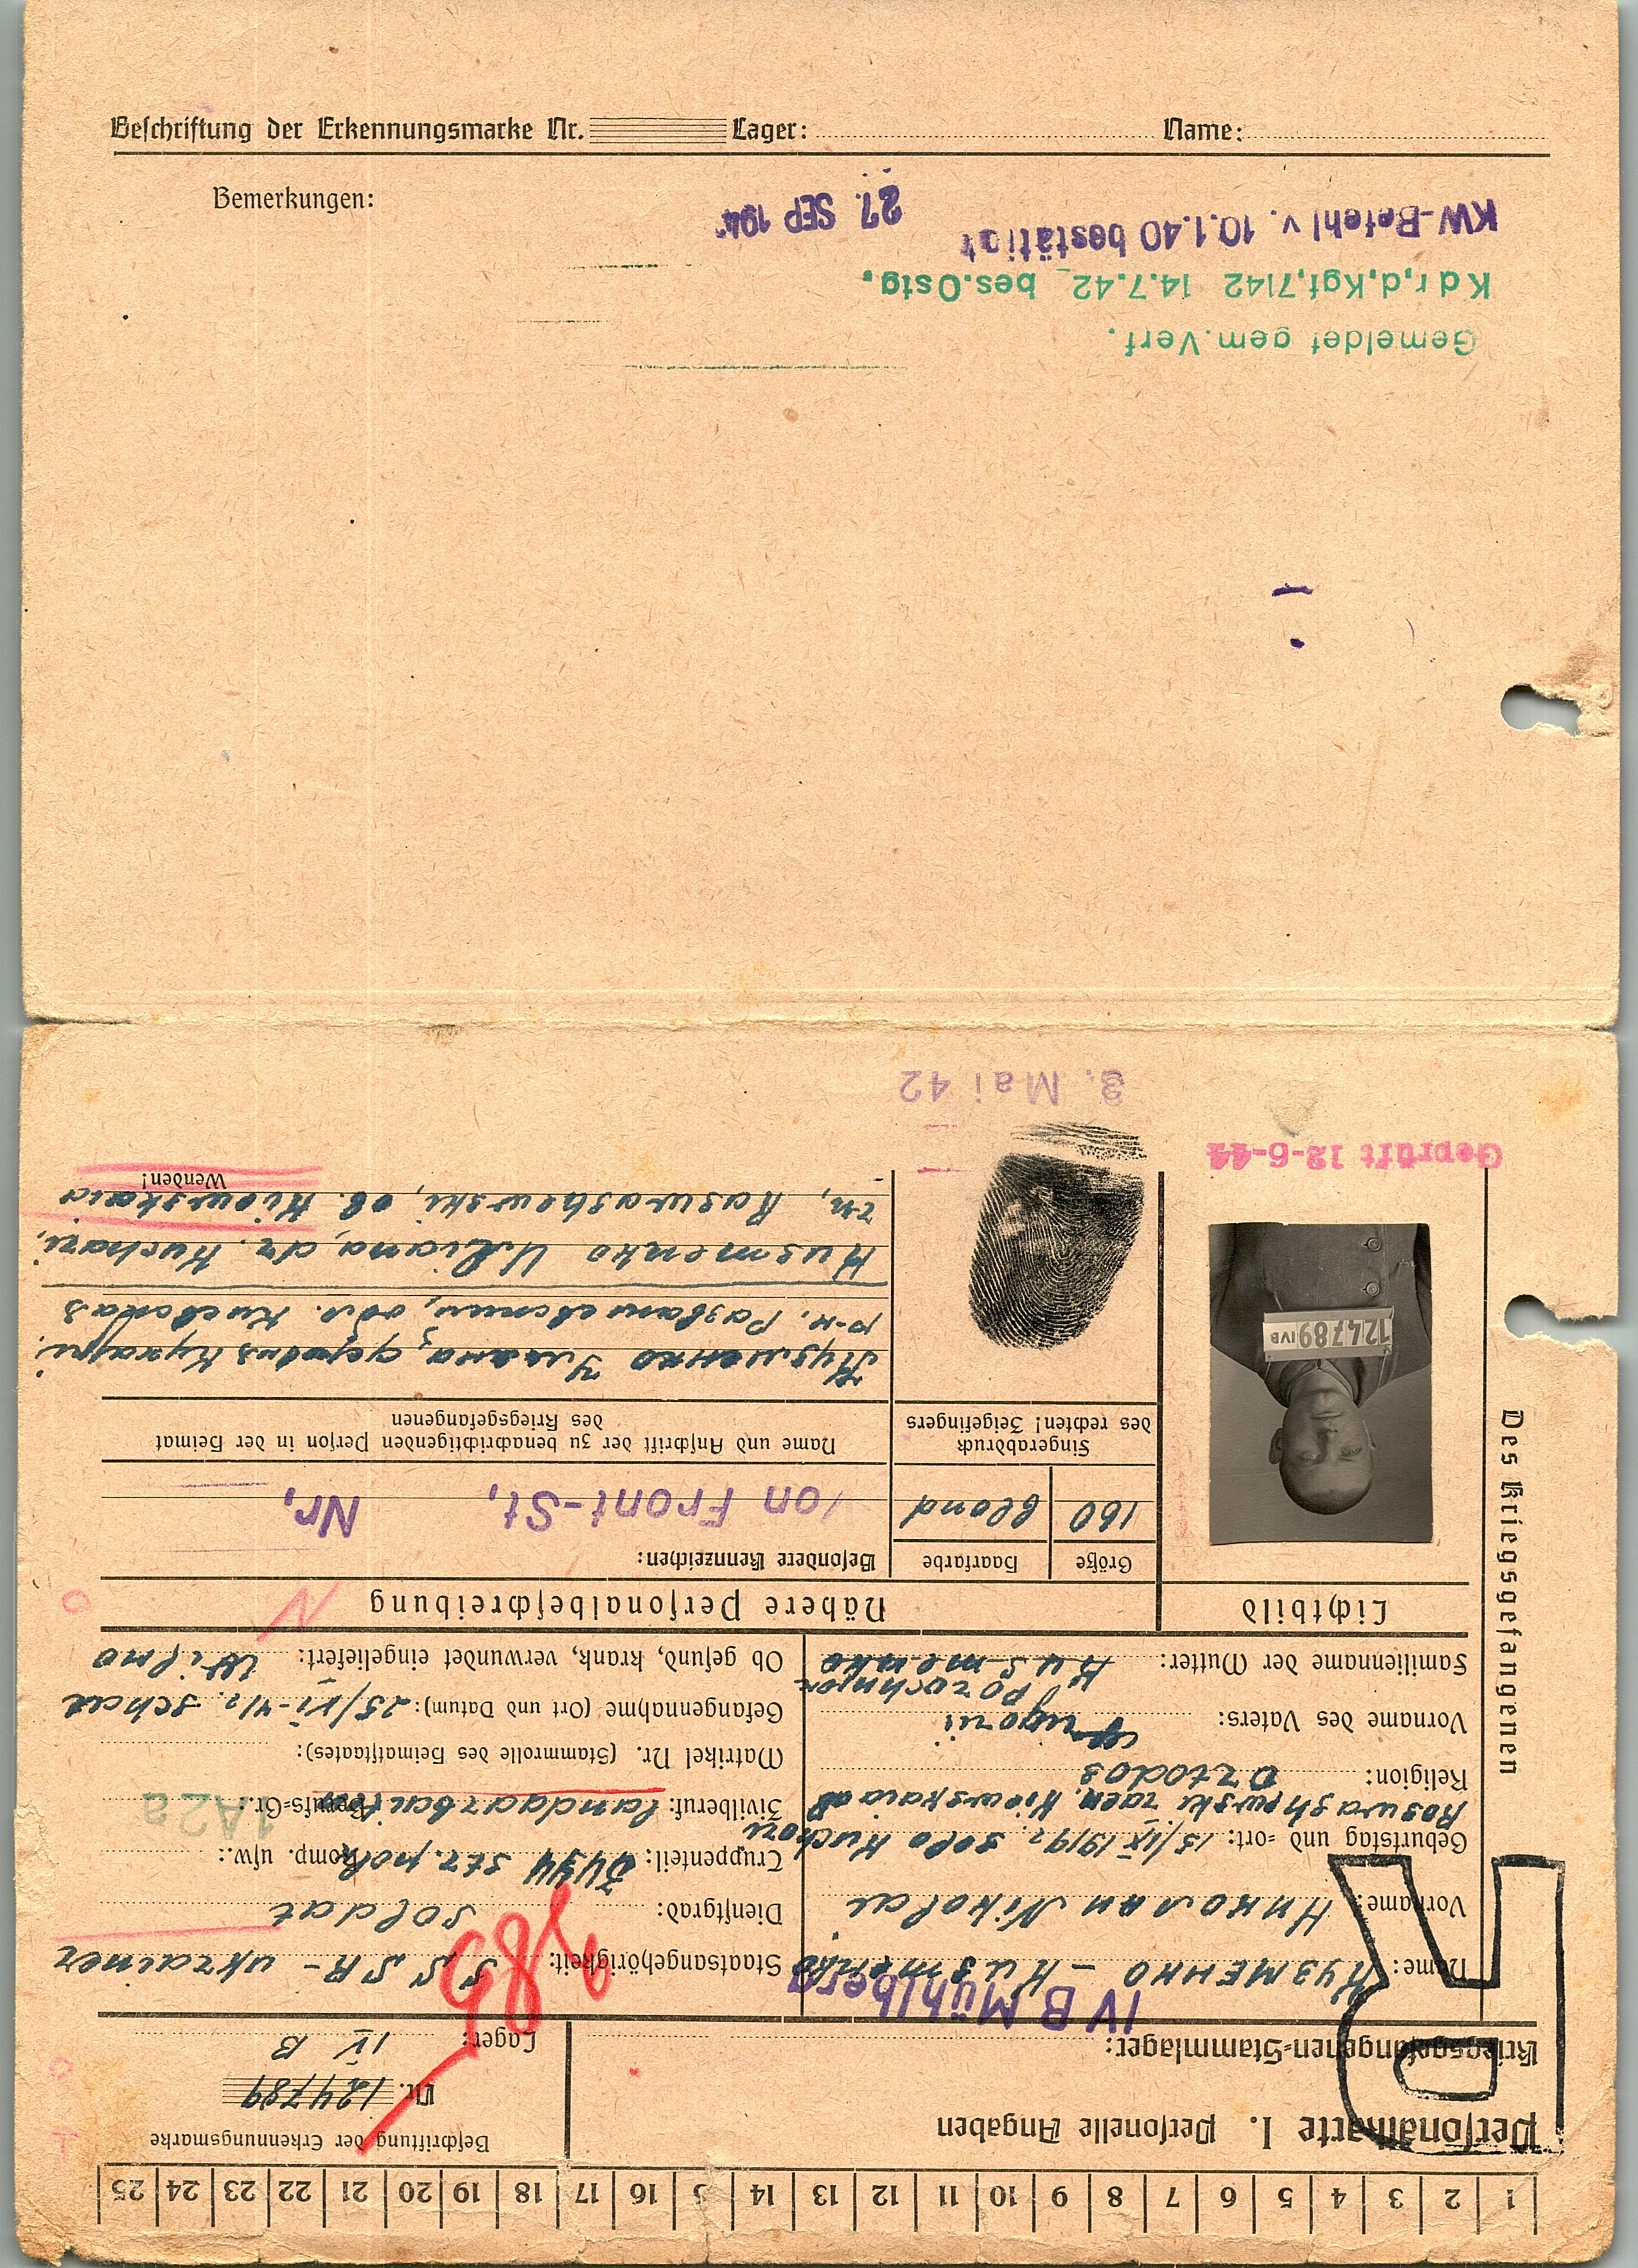 1 2 3 4 5 6 7 8 9 10 11 12 13 14 5 16 17 18 19 20 21 22 23 24 25
Personalkarte I. Personelle Angaben
Beschriftung der Erkennungsmarke
Nr. 124789
Kriegsgefangenen-Stammlager:
IV B Mühlberg
Lager: IV B
R
Des Kriegsgefangenen
Name: Кузменко – Kusmenko
Staatsangehörigkeit: SSSR – Ukrainer
Vorname: Николаи Nikolai
Dienstgrad: Soldat
Geburtstag und -ort: 15/IX 1919 selo Kuchari
Roswashewski raen. Kiewskaia ob
Truppenteil: str. polk Komp. usw.:
Religion: Ortodos
Zivilberuf: Berufs-Gr.:
1A2a
Matrikel Nr. (Stammrolle des Heimatstaates):
Vorname des Vaters:
Gefangennahme (Ort und Datum): 25/VI-41
Familienname der Mutter: Kusmenko
Ob gesund, krank, verwundet eingeliefert:
N
Lichtbild
Nähere Personalbeschreibung
Größe
Haarfarbe
Besondere Kennzeichen:
160
blond
von Front-St, Nr,
Fingerabdruck
des rechten! Zeigefingers
Name und Anschrift der zu benachrichtigenden Person in der Heimat
des Kriegsgefangenen
Кузменко Улиана, деревня Кухари,
р-н. обл. Киевская
Kusmenko Uliana, dr. Kuchari,
rn, Raswashewski, ob. Kiewskaia
Wenden!
124789 IVB
Geprüft 12-6-44
3. Mai 42
Beschriftung der Erkennungsmarke Nr. Lager: Name:
Bemerkungen:
Gemeldet gem. Verf.
Kdr,d,Kgf,7142 14.7.42 bes.Ostg.
KW-Befehl v. 10.1.40 bestätigt
27. SEP 194